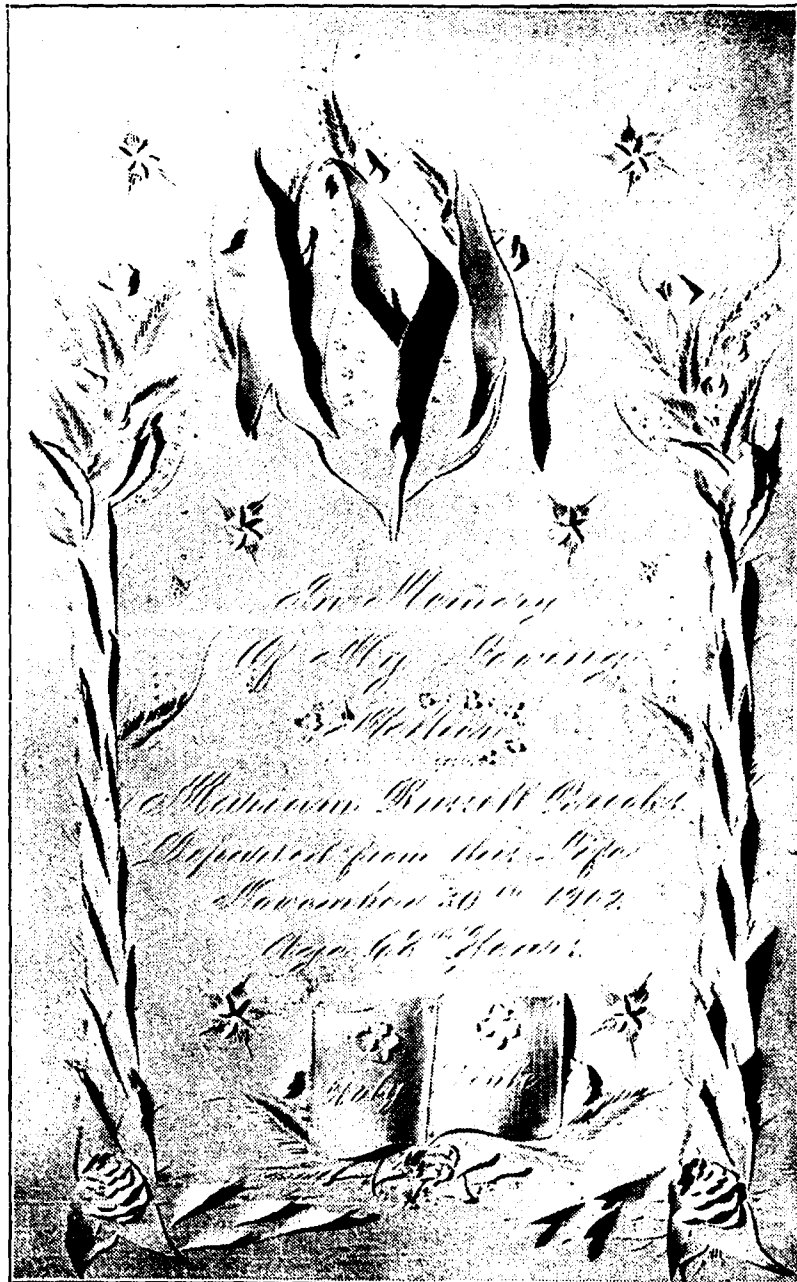 In Memory
Of My Loving
Mother
Russell
Departed from this Life
November 30th 1902
Age Years
Holy